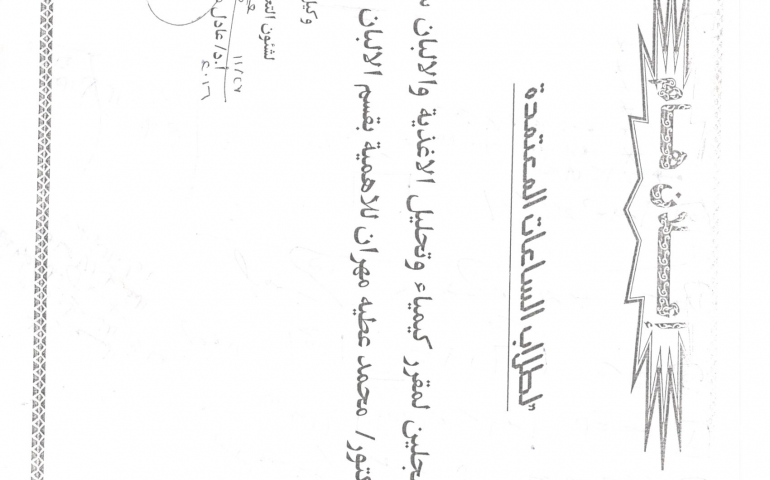 إعلان هام
"لطلاب الساعات المعتمدة
جلين لمقرر كيمياء وتحليل الاغذية والالبان
كتور/ محمد عطيه مهران للاهمية بقسم الالبان
وكيل
لشئون التع
أ.د/ عادل